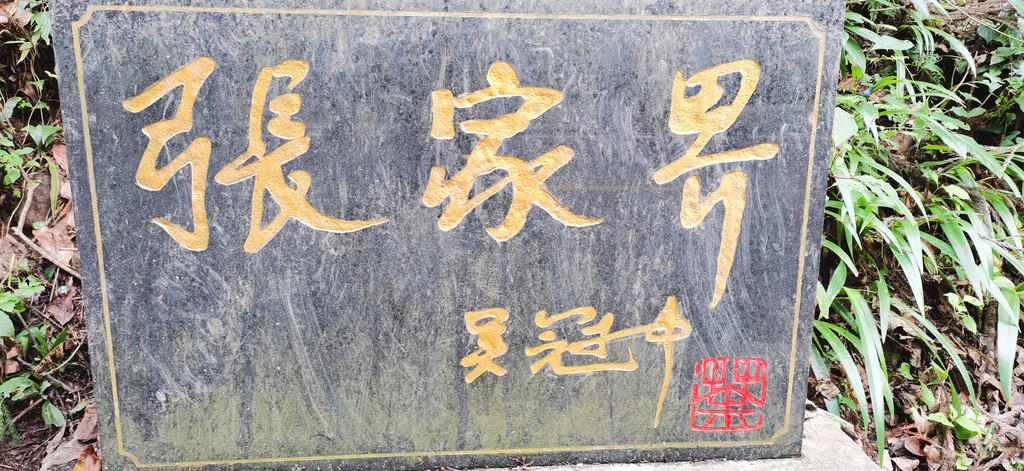 張家界
吴冠中